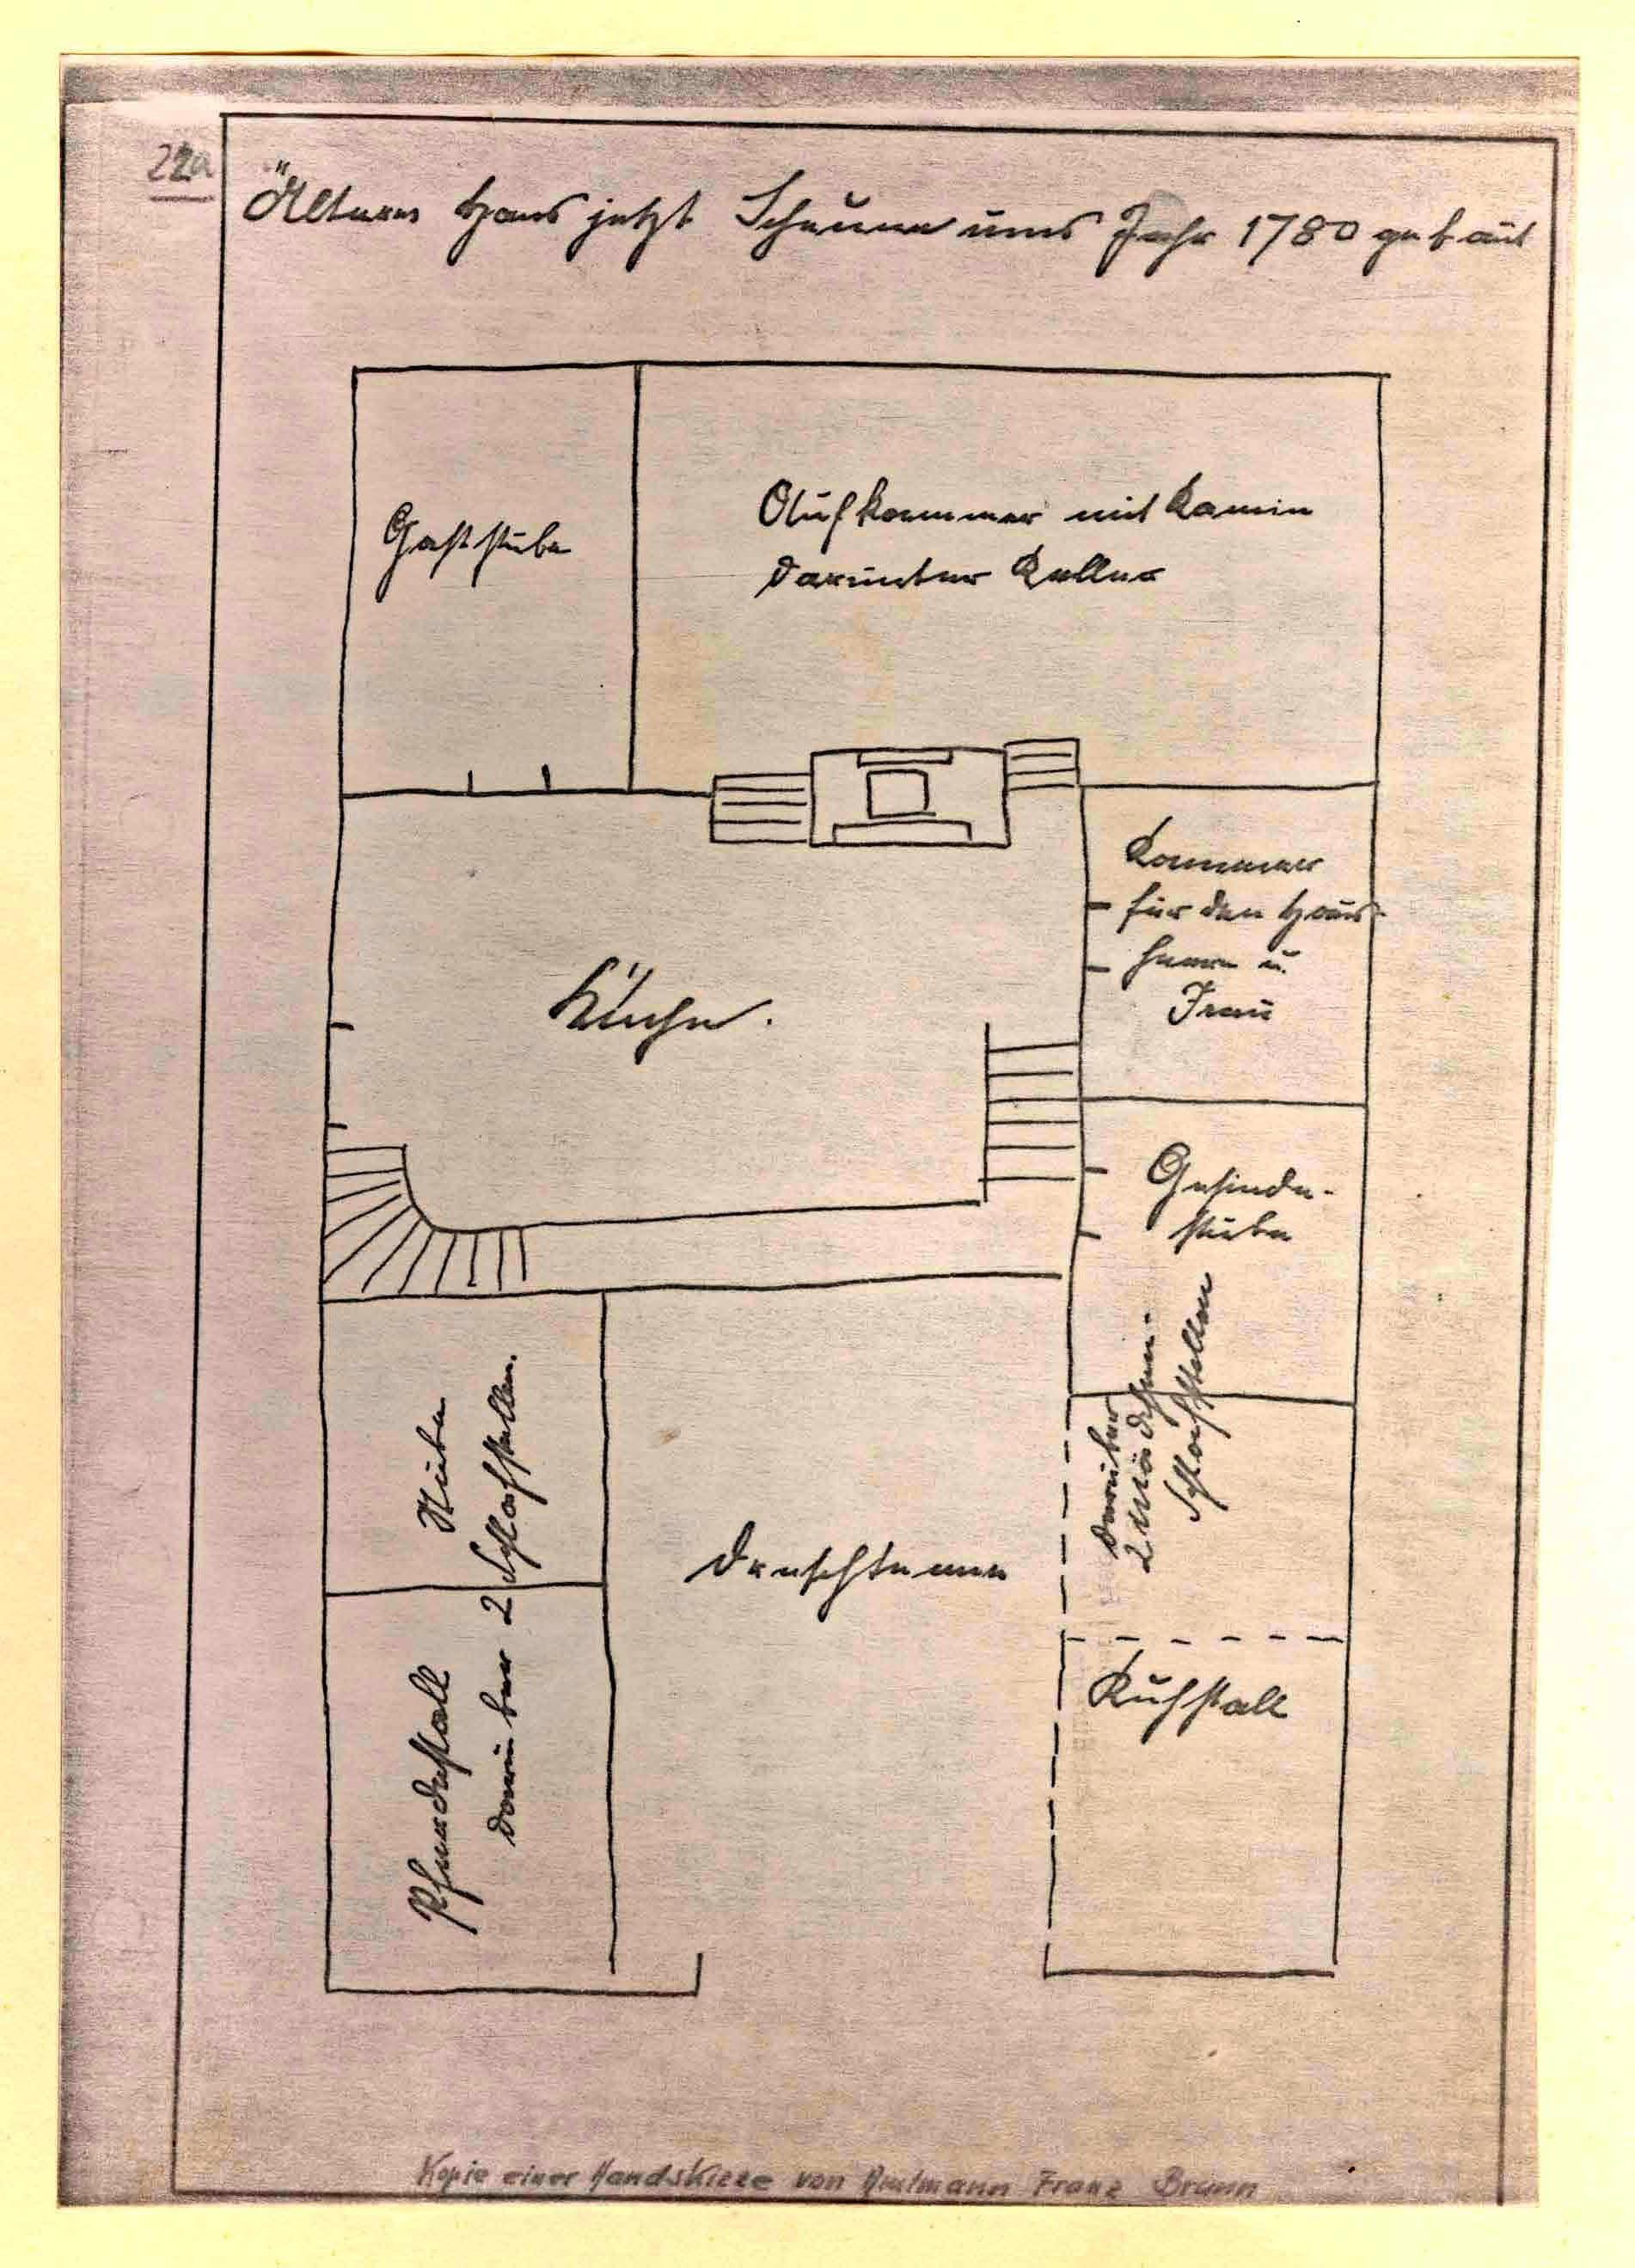 22a
Älteres Haus jetzt Scheune ums Jahr 1780 gebaut
Gaststube
Aufkammer mit Kamin
darunter Keller
Kammer
für den Haus-
herrn u.
Frau
Küche.
Gesinde-
stube
darüber
2 Mädchen-
Schlafstellen
Stube
Pferdestall
darüber 2 Schlafstellen.
Dreschtenne
Kuhstall
Kopie einer Handskizze von Amtmann Franz Brunn